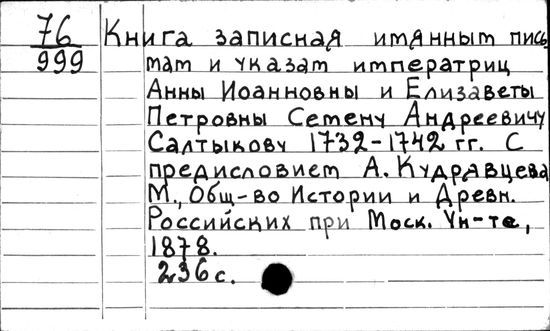 76
999
Книга записная имянным пись
мам и указам императриц
Анны Иоанновны и Елизаветы
Петровны Семену Андреевичу
Салтыкову 1732-1742 гг. С
предисловием А. Кудравцева
М., Общ-во Истории и Древн.
Российских при Моск. Ун-те,
1878.
236 с.